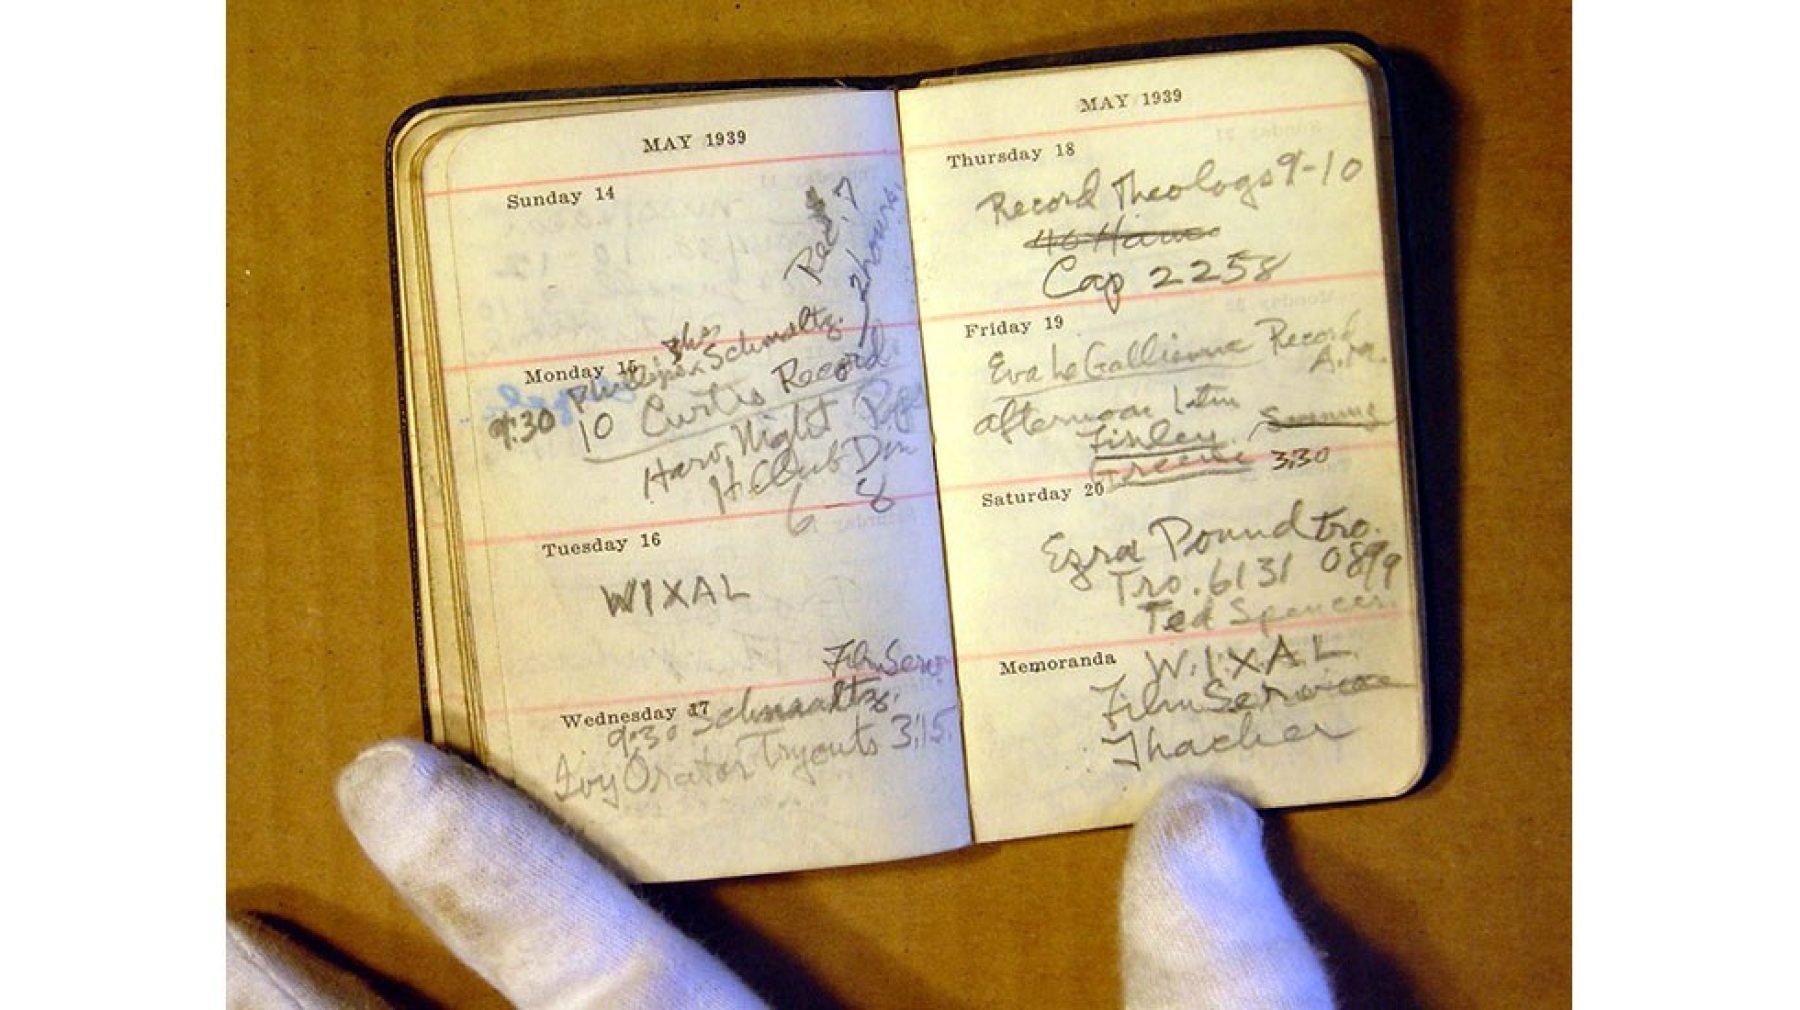 MAY 1939
Sunday 14
Rec. 7
2 hours.
Monday 15
Schmaltz.
9:30
10 Curtis Record
Harv. Night
H Club Din
6 8
Tuesday 16
WIXAL
Film Serv.
Wednesday 17
9:30 Schmaltz.
Ivy Orator Tryouts 3:15
MAY 1939
Thursday 18
Record Theologs 9-10
Cap 2258
Friday 19
Eva Le Gallienne Record
A.M.
afternoon
Finley
Greene 3:30
Saturday 20
Ezra Pound Tro.
Tro. 6131 0899
Ted Spencer
Memoranda
WIXAL
Film Service
Thacher